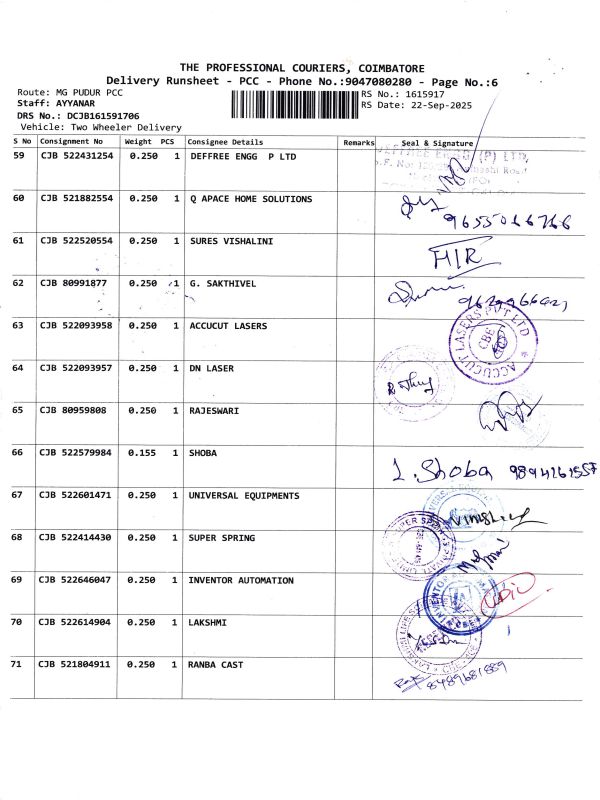 THE PROFESSIONAL COURIERS, COIMBATORE
Delivery Runsheet - PCC - Phone No.:9047080280 - Page No.:6
Route: MG PUDUR PCC
RS No.: 1615917
Staff: AYYANAR
RS Date: 22-Sep-2025
DRS No.: DCJB161591706
Vehicle: Two Wheeler Delivery
S No Consignment No Weight PCS Consignee Details Remarks Seal & Signature
59 CJB 522431254 0.250 1 DEFFREE ENGG P LTD
60 CJB 521882554 0.250 1 Q APACE HOME SOLUTIONS
9655066766
61 CJB 522520554 0.250 1 SURES VISHALINI
H/R
62 CJB 80991877 0.250 1 G. SAKTHIVEL
63 CJB 522093958 0.250 1 ACCUCUT LASERS
ACCUCUT LASERS PVT LTD
CBE
64 CJB 522093957 0.250 1 DN LASER
65 CJB 80959808 0.250 1 RAJESWARI
66 CJB 522579984 0.155 1 SHOBA
L. Shoba 9894261557
67 CJB 522601471 0.250 1 UNIVERSAL EQUIPMENTS
68 CJB 522414430 0.250 1 SUPER SPRING
69 CJB 522646047 0.250 1 INVENTOR AUTOMATION
70 CJB 522614904 0.250 1 LAKSHMI
71 CJB 521804911 0.250 1 RANBA CAST
8489681889